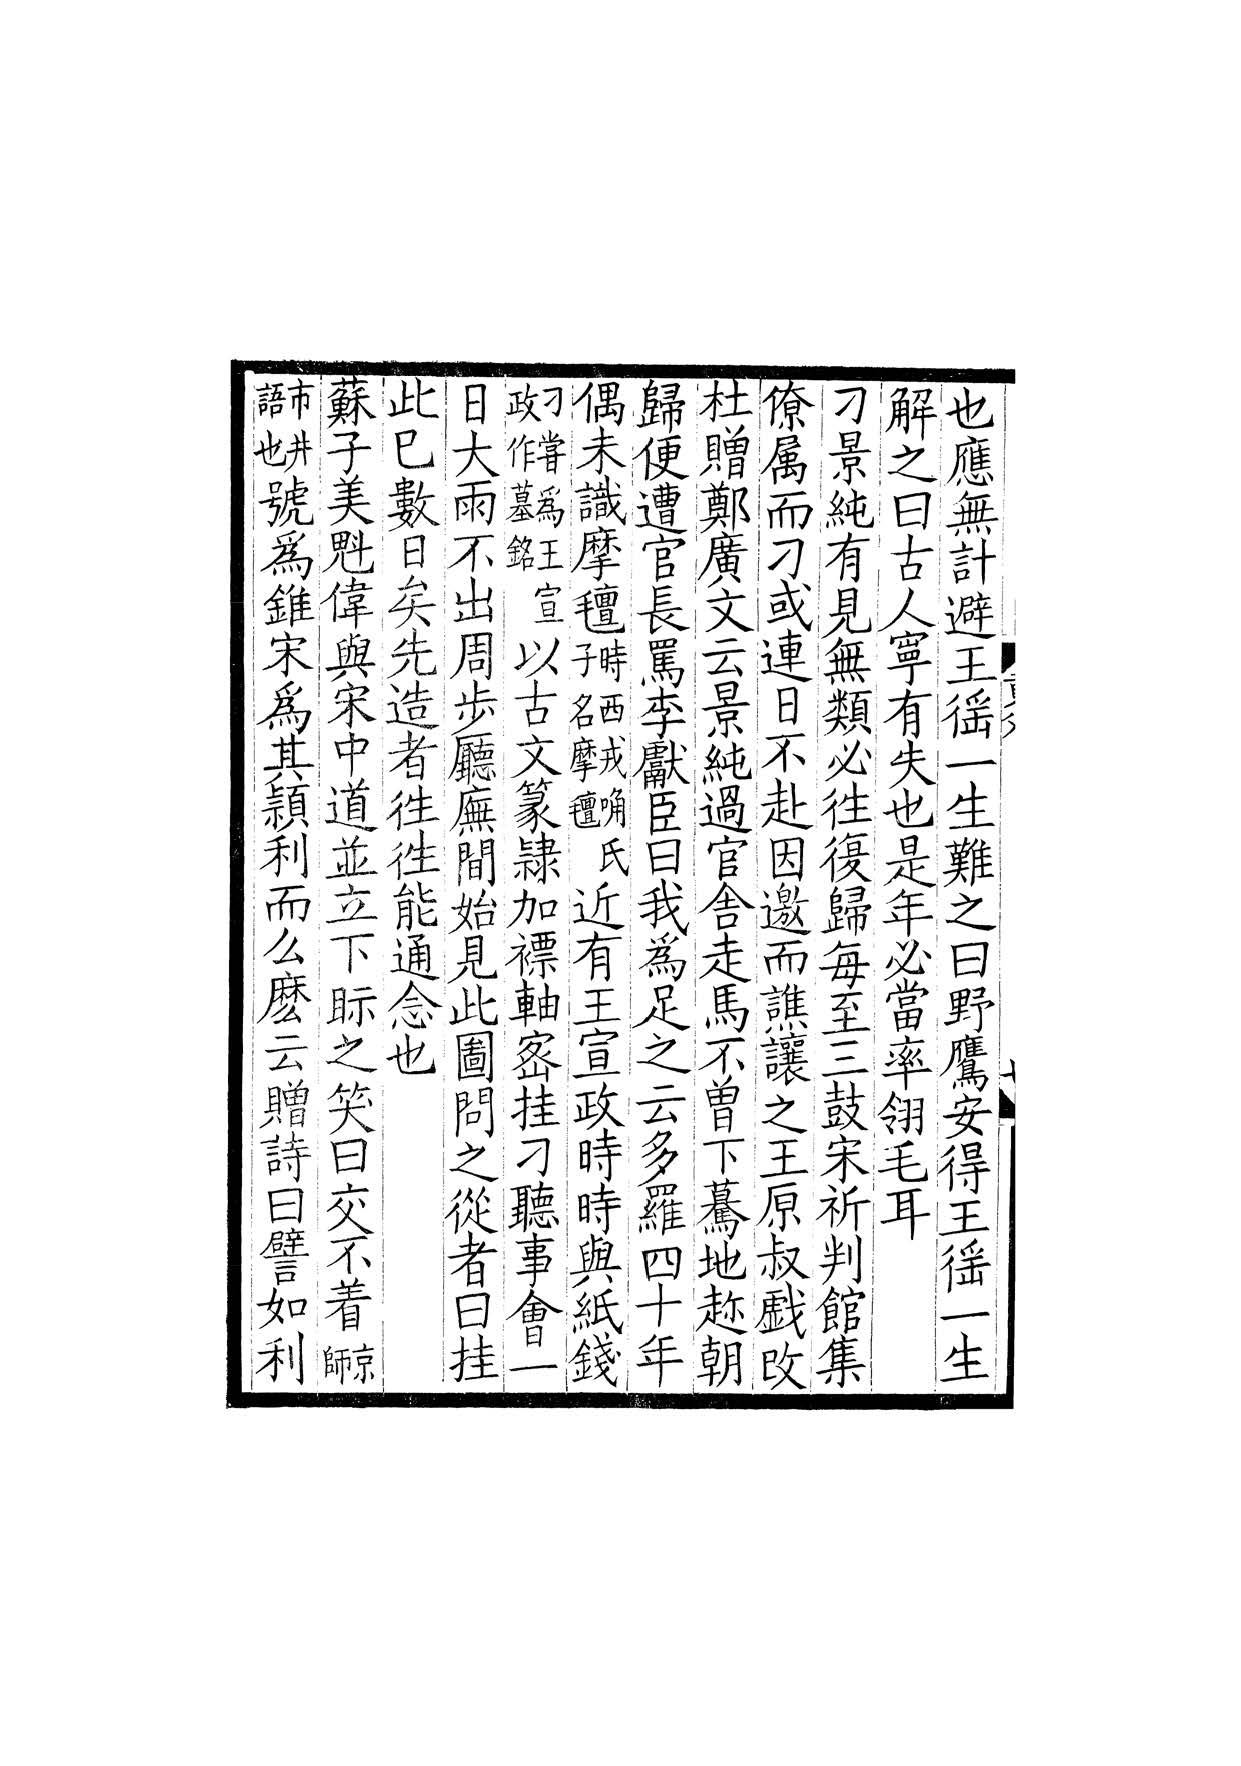 也應無計避王徭一生難之曰野鷹安得王徭一生
解之曰古人寧有失也是年必當率翎毛耳
刁景純有見無類必徃復歸每至三鼓宋祈判館集
僚属而刁或連日不赴因邀而譙讓之王原叔戱改
杜贈鄭廣文云景純過官舍走馬不曽下驀地趂朝
歸便遭官長罵李獻臣曰我爲足之云多羅四十年
偶未識摩氊時西戎唃氏子名摩氊近有王宣政時時與紙錢
刁甞爲王宣政作墓銘以古文篆隷加褾軸宻挂刁聽事會一
日大雨不出周步廳廡間始見此圖問之從者曰挂
此巳數日矣先造者徃徃能通念也
蘇子美魁偉與宋中道並立下眎之笑曰交不着京師
市井語也號爲錐宋爲其潁利而么麽云贈詩曰譬如利